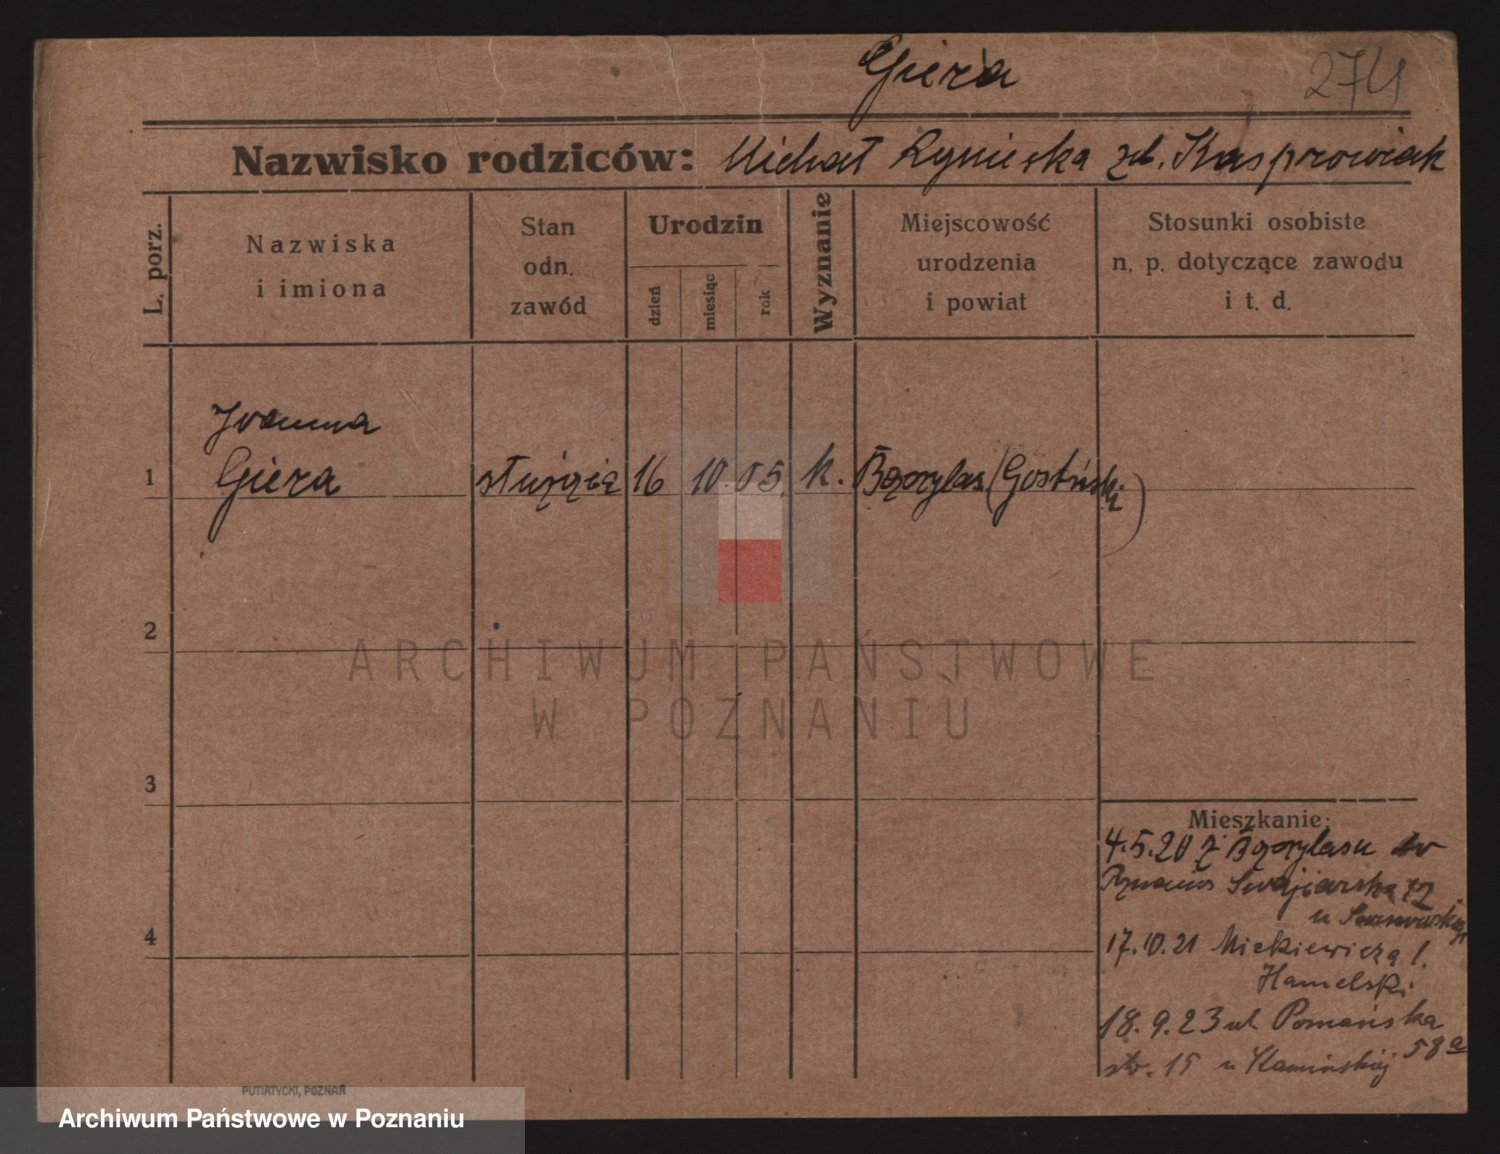 Giera
274
Nazwisko rodziców: Michał Agnieszka zd. Kasprowiak
L. porz.
Nazwiska
i imiona
Stan
odn.
zawód
Urodzin
dzień
miesiąc
rok
Wyznanie
Miejscowość
urodzenia
i powiat
Stosunki osobiste
n. p. dotyczące zawodu
i t. d.
Joanna
1 Giera służąca 16 10 05 k. Bączylas (Gostyński)
2
ARCHIWUM PAŃSTWOWE
W POZNANIU
3
Mieszkanie:
4.5.20 z Bączylasu
12
u
4
17.10.21 Mickiewicza 1.
Hamelski
18.9.23 ul. Poznańska
58a
str. 15 u Kamińskiej
PUTIATYCKI, POZNAŃ
Archiwum Państwowe w Poznaniu